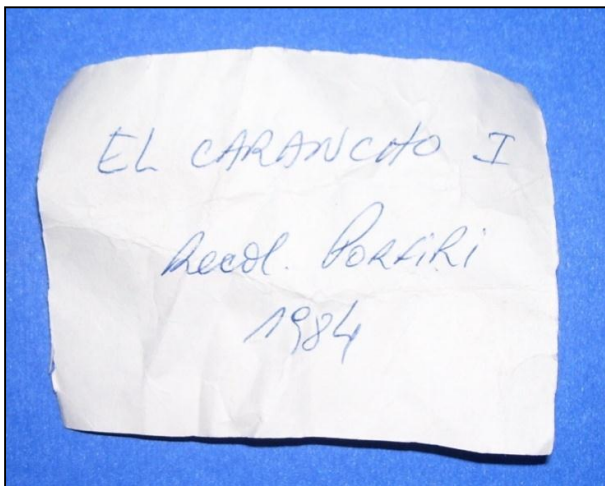 EL CARANCHO I
Recol. PORFIRI
1984